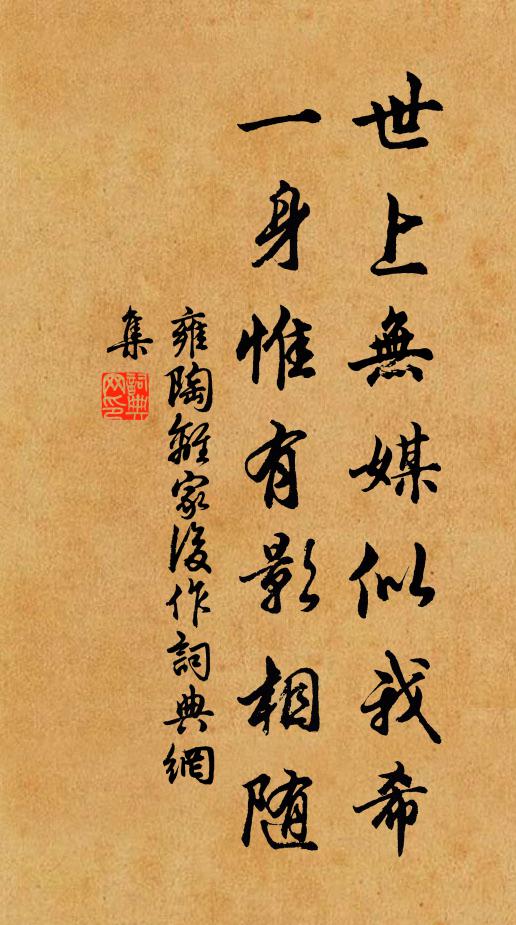 世上無媒似我希
一身惟有影相随
雍陶離家後作詞典網
集
詞典
网印